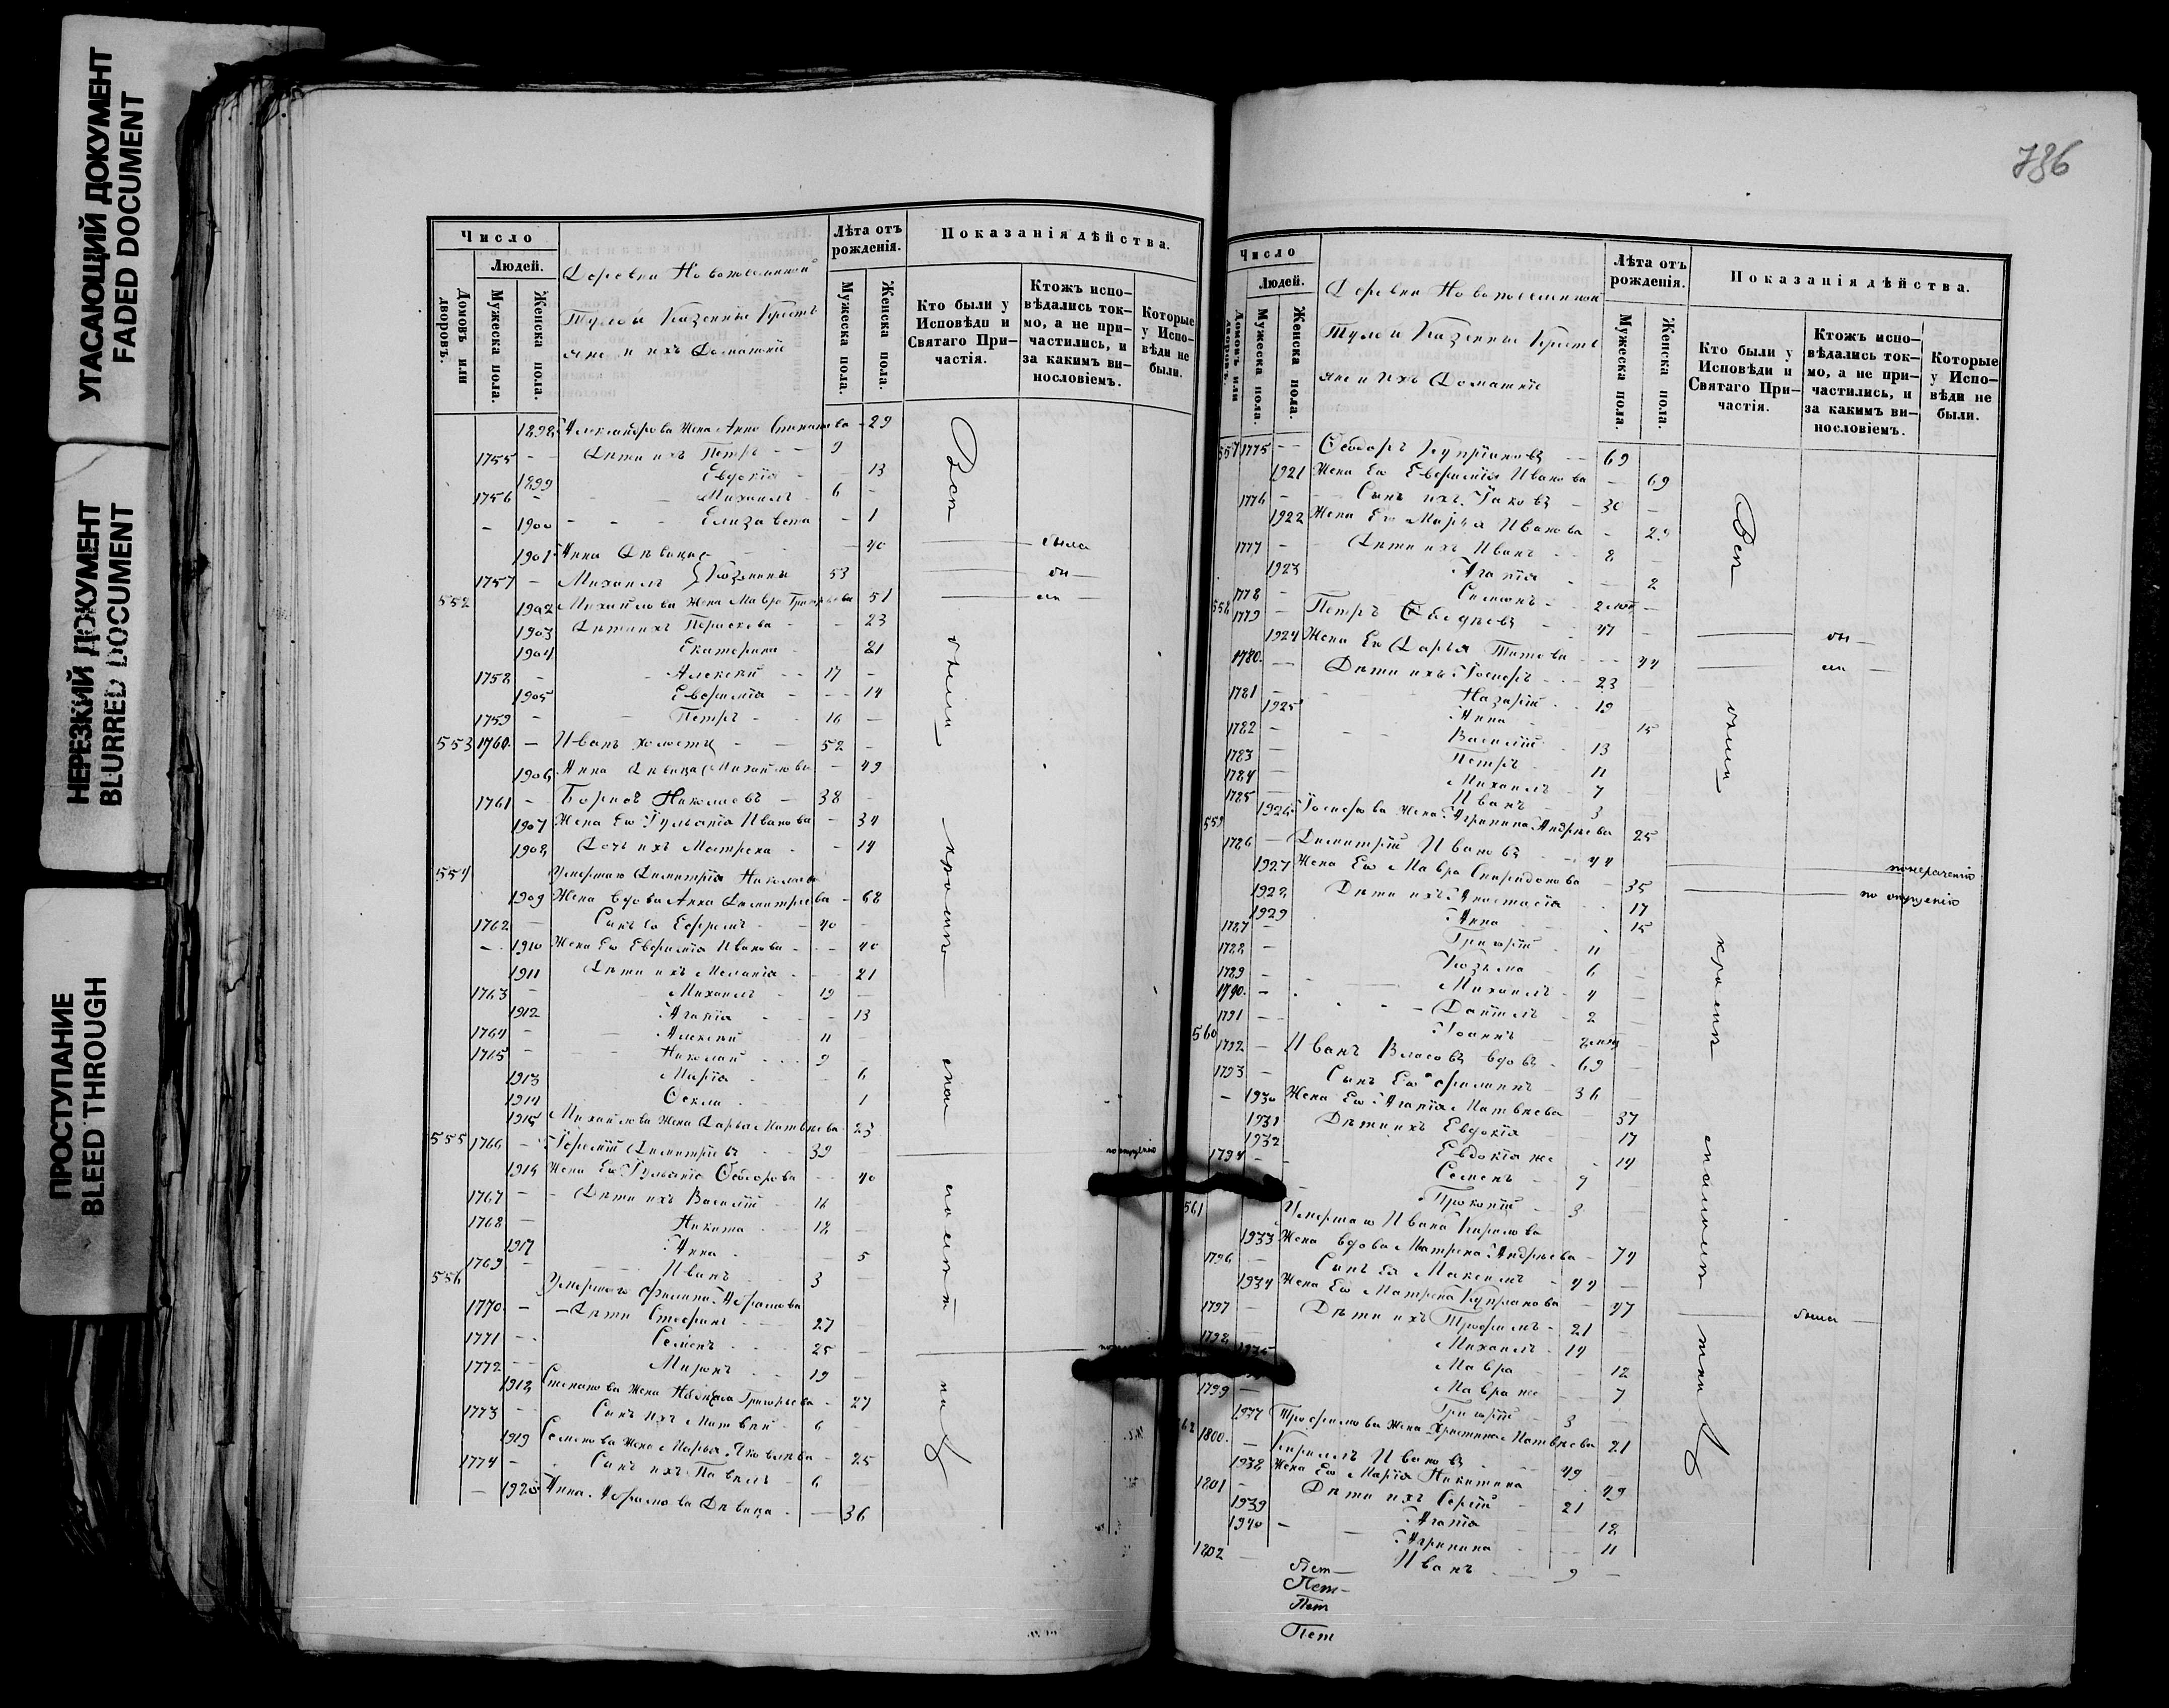 УГАСАЮЩИЙ ДОКУМЕНТ
FADED DOCUMENT
НЕРЕЗКИЙ ДОКУМЕНТ
BLURRED DOCUMENT
ПРОСТУПАНИЕ
BLEED THROUGH
Число
Людей.
Домовъ или дворовъ.
Мужеска пола.
Женска пола.
Деревни
Казенные Кресть
яне и ихъ Домашніе
Лѣта отъ рожденія.
Мужеска пола.
Женска пола.
Показанія дѣйства.
Кто были у Исповѣди и Святаго Причастія.
Ктожъ исповѣдались токмо, а не причастились, и за какимъ винословіемъ.
Которые у Исповѣди не были.
1898 Александрова Жена Анна Степанова 29
1755 Дѣти ихъ Петръ 9
1899 Евдокія 13
1756 Михаилъ 6
1900 Елизавета 1
1901 Анна Дѣвица 40 была
1757 Михаилъ 53
552 1902 Михайлова Жена Мавра Григорьева 51
1903 Дѣти ихъ Параскева 23
1904 Екатерина 21
1758 Алексѣй 17
1905 Евфимія 14
1759 Петръ 16
553 1760 Иванъ холостъ 52
1906 Анна Дѣвица Михайлова 49
1761 Борисъ Николаевъ 38
1907 Жена Его Іуліанія Иванова 34
1908 Дочь ихъ Матрена 14
554 Умершаго Димитрія Николаева
1909 Жена вдова Анна Димитріева 68
1762 Сынъ Ея Ефремъ 40
1910 Жена Его Евфимія Иванова 40
1911 Дѣти ихъ Меланія 21
1763 Михаилъ 19
1912 Агапія 13
1764 Алексѣй 11
1765 Николай 9
1913 Марія 6
1914 Ѳекла 1
1915 Михайлова Жена Дарья Матвѣева 23
555 1766 Димитріевъ 39 по опущенію
1916 Жена Его Іуліанія Ѳеодорова 40
1767 Дѣти ихъ Василій
1768 Никита
1917 Анна 5
1769 Иванъ 3
556 Умершаго Филиппа Абрамова
1770 Дѣти Стефанъ 27
1771 Семенъ 25
1772 Миронъ 19
1918 Степанова Жена Григорьева 27
1773 Сынъ ихъ Матвѣй 6
1919 Семенова Жена Марья Яковлева 25
1774 Сынъ ихъ Павелъ 6
1920 Анна Абрамова Дѣвица 36
Всѣ были кромѣ
786
Число
Людей.
Домовъ или дворовъ.
Мужеска пола.
Женска пола.
Деревни
Казенные Кресть
яне и ихъ Домашніе
Лѣта отъ рожденія.
Мужеска пола.
Женска пола.
Показанія дѣйства.
Кто были у Исповѣди и Святаго Причастія.
Ктожъ исповѣдались токмо, а не причастились, и за какимъ винословіемъ.
Которые у Исповѣди не были.
557 1775 Ѳеодоръ Купріяновъ 69
1921 Жена Его Евфимія Иванова 69
1776 Сынъ ихъ Іаковъ 30
1922 Жена Его Марья Иванова 29
1777 Дѣти ихъ Иванъ 8
1923 Агапія 2
1778 Симеонъ
558 1779 Петръ 47
1924 Жена Его Дарья Титова 44
1780 Дѣти ихъ Іосифъ 23
1781 Назарій 19
1925 Анна 15
1782 Василій 13
1783 Петръ 11
1784 Михаилъ 7
1785 Иванъ 3
1926 Іосифова Жена Агрипина Андрѣева 25
559 1786 Димитрій Ивановъ 44 по нераченію
1927 Жена Его Мавра Спиридонова 35 по опущенію
1928 Дѣти ихъ Анастасія 17
1929 Анна 15
1787 Григорій 11
1788 Козьма 6
1789 Михаилъ 4
1790 Даніилъ 2
1791 Іоаннъ
560 1792 Иванъ Власовъ вдовъ 69
1793 Сынъ Его Филиппъ 36
1930 Жена Его Агапія Матвѣева 37
1931 Дѣти ихъ Евдокія 17
1932 Евдокія же 14
1794 Семенъ 9
Прокопій 3
561 Умершаго Ивана Кирилова
1933 Жена вдова Матрена Андрѣева 74
1796 Сынъ Ея Максимъ 44
1934 Жена Его Матрена Купріанова 47 была
1797 Дѣти ихъ Трофимъ 21
1798 Михаилъ 14
Мавра 12
Мавра же 7
1799 Григорій 3
1937 Трофимова Жена Христина Матвѣева 21
1800 Кириллъ Ивановъ 49
1938 Жена Его Марія Никитина 49
1801 Дѣти ихъ Сергій 21
1939 Агапія 18
1940 Агрипина 11
1802 Иванъ 9
Всѣ были кромѣ
Пет
Пет
Пет
Пет